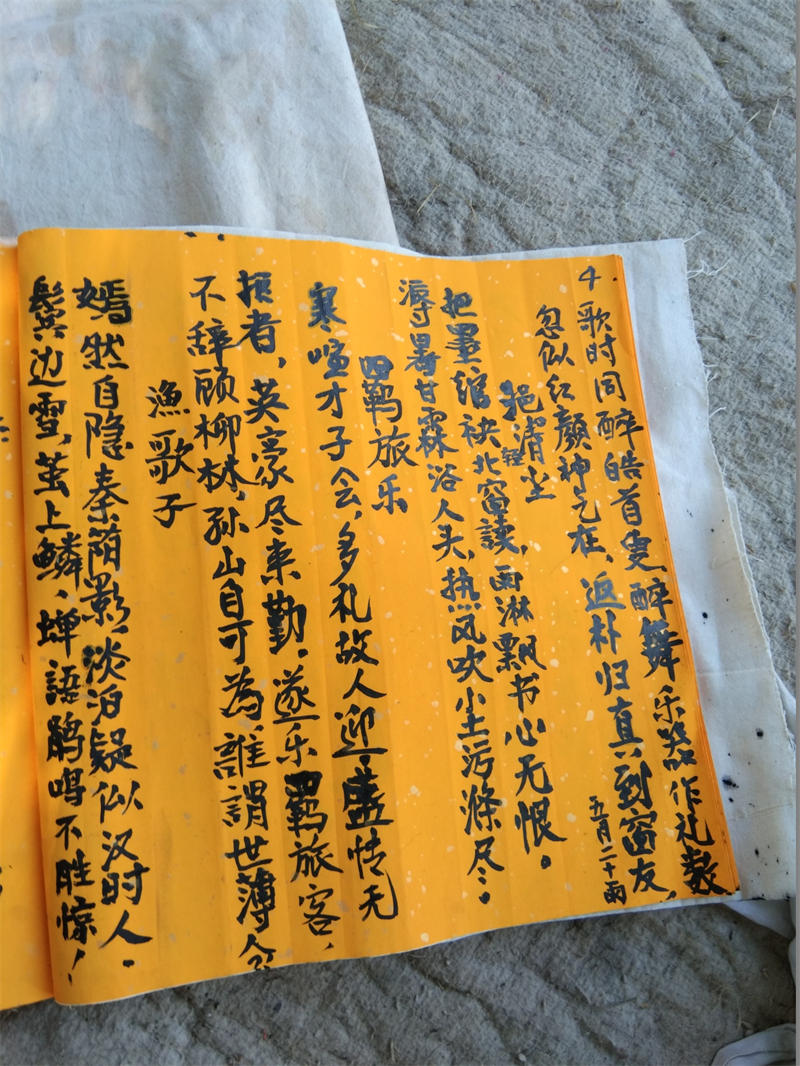 4.歌时同醉皓首更醉舞乐器作礼数
忽似红颜神元在,返朴归真到窗友,
五月二十雨
挹清尘
轻
把墨绾袂北窗读,雨淋飘书心无恨。
溽暑甘霖浴人头,热风吹尘污涤尽。
四羁旅乐
寒喧才子会,多礼故人迎,盛情无
损者,英豪尽来勤。遂乐羁旅客,
不辞顾柳林,孙山自可为,谁謂世薄
漁歌子
嫣然自隐秦荫影,淡泊疑似汉时人。
鬓边雪,茧上鳞,蝉語鹃鸣不胜惊!